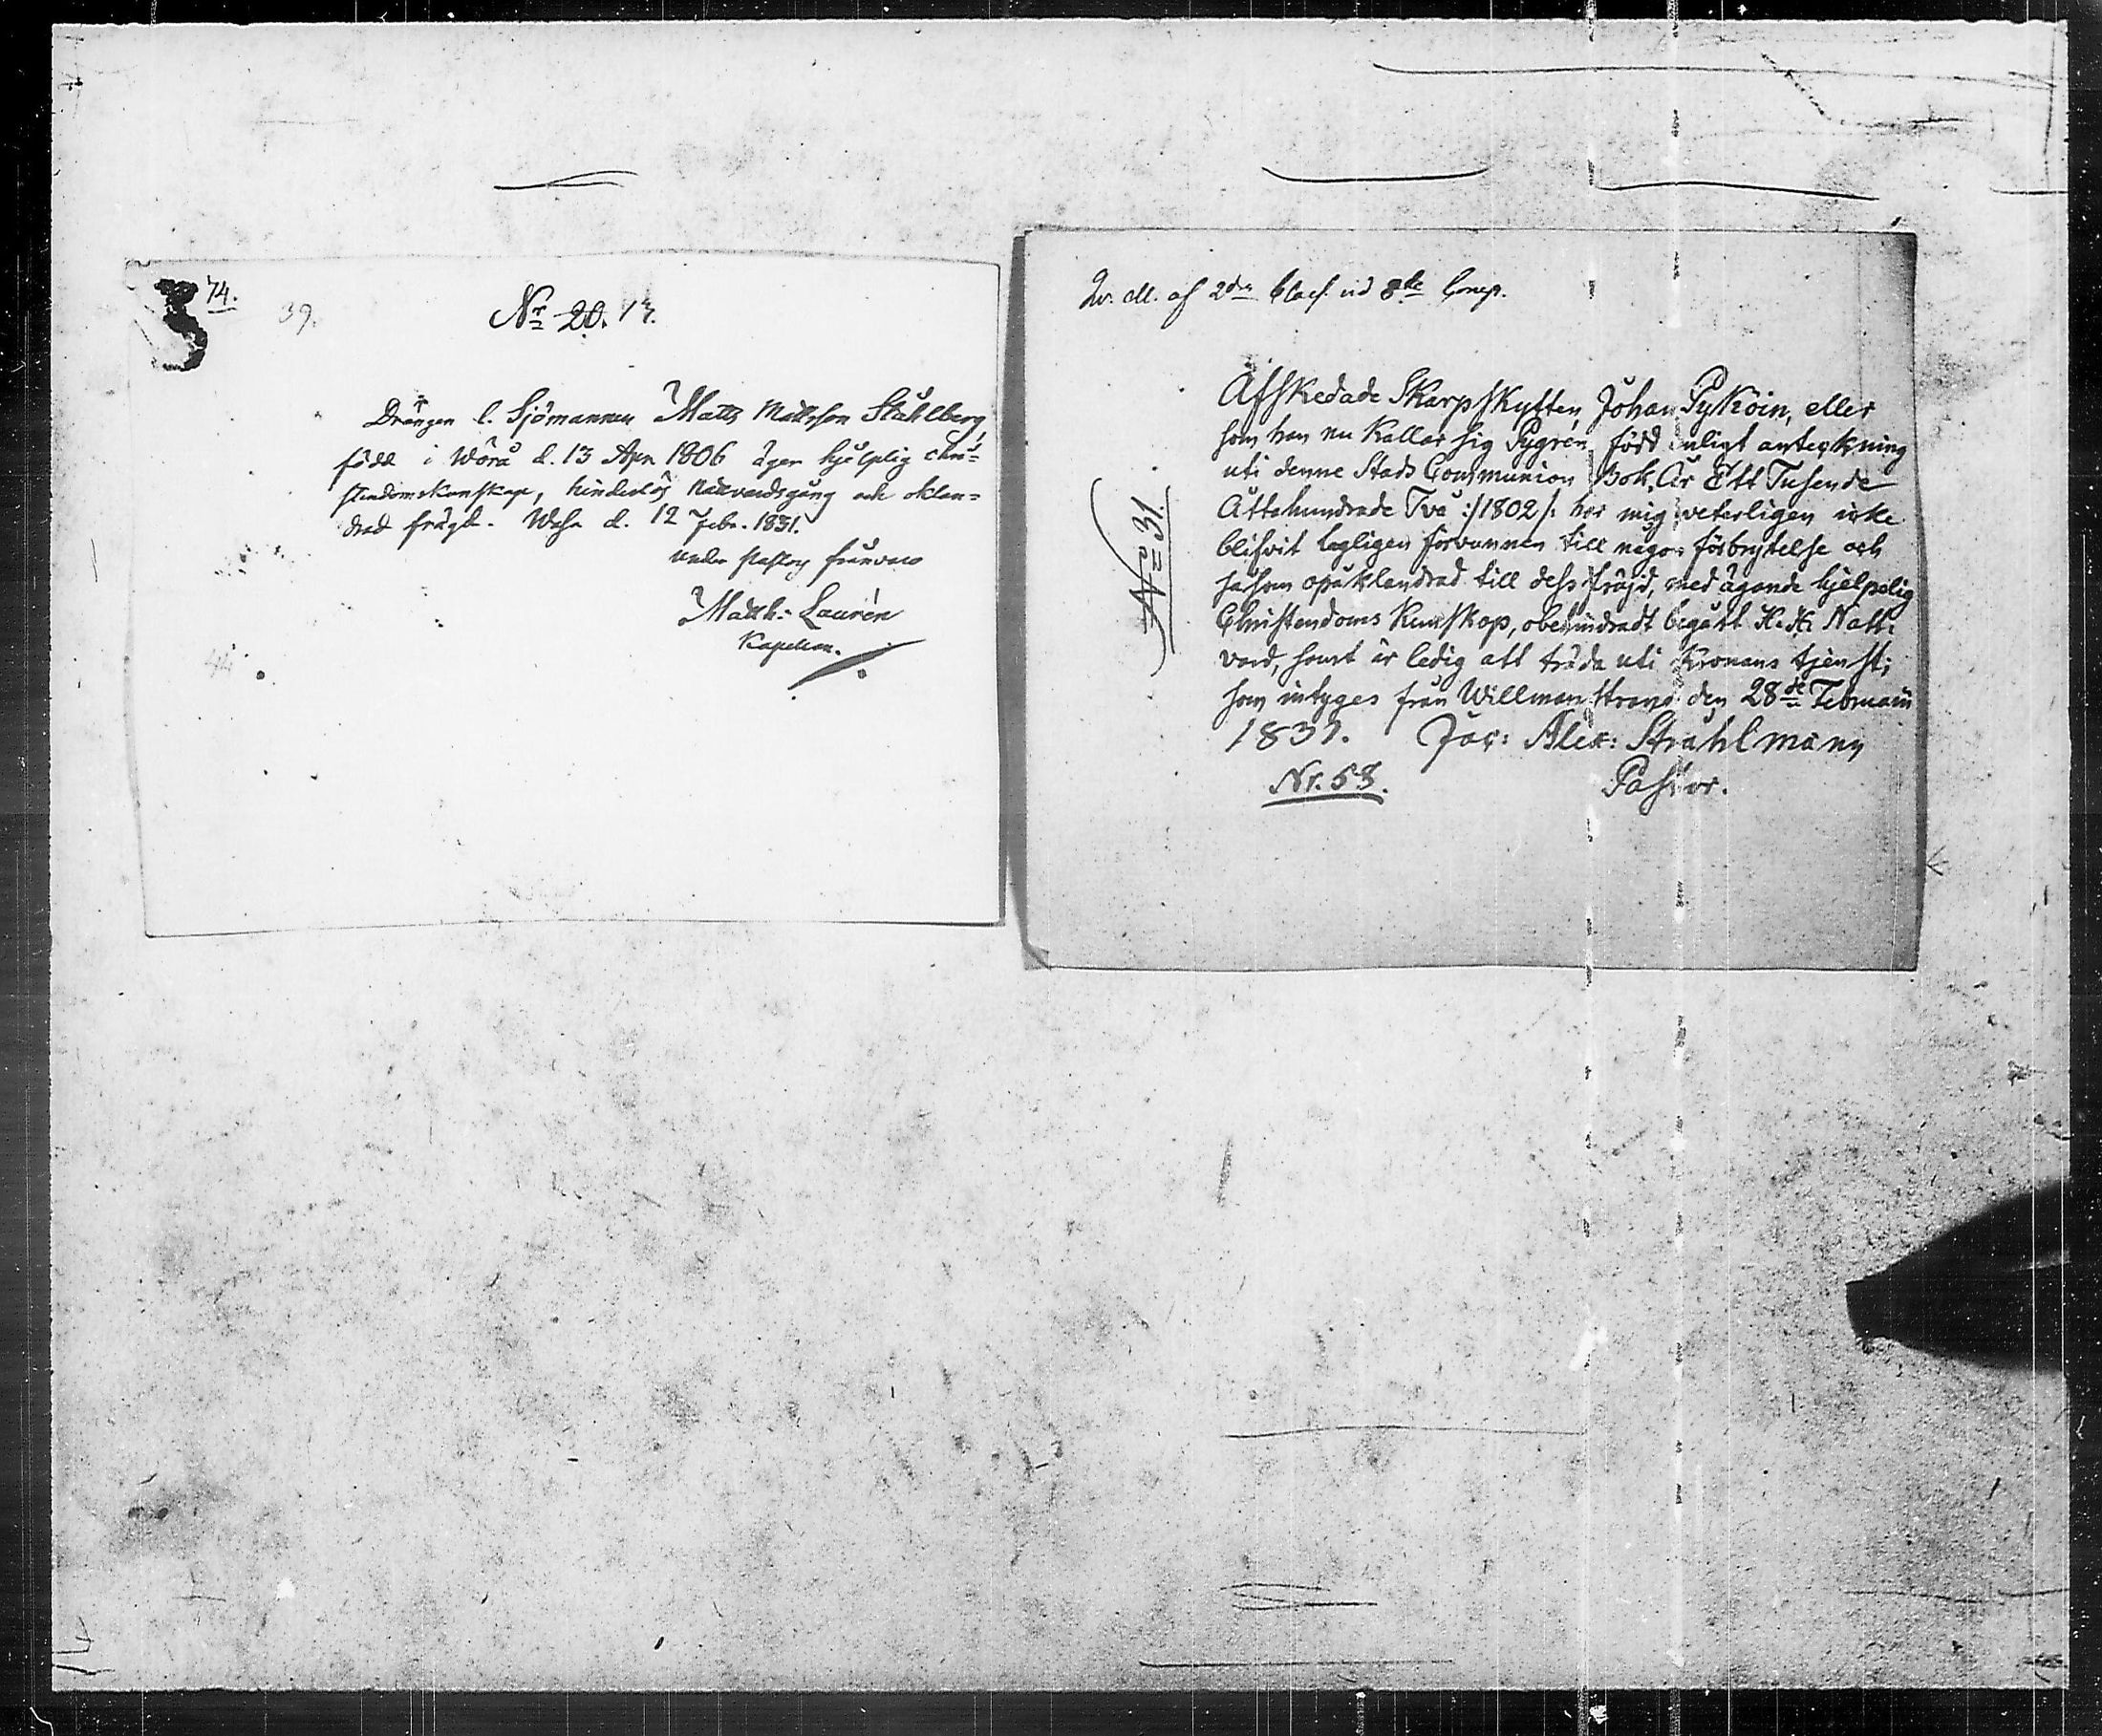 74.
39.
Nr 20. 13.
Drängen l. Sjömannen Matts Mattsson Ståhlberg,
född i Wörå d. 13 Apr. 1806 äger hjelplig chri-
stendomskunskap, hinderlös nattvardsgång och oklan-
drad frägd. Wasa d. 12 Febr. 1831.
under Pastors frånvaro
Matth: Laurén
Kapellan.
Qv. M. af 2dra Class. vid 8de Comp.
No 31.
Afskedade Skarpskytten Johan Pyköin, eller
som han nu Kallar sig Pygrén, född enligt anteckning
uti denne Stads Communion Bok, År Ett Tusende
Åttahundrade Två :/1802/: har mig veterligen icke
blifvit lagligen förvunnen till någon förbrytelse och
såsom oputklandrad till dess fräjd, med ägande hjelpelig
Christendoms Kunskap, obehindradt begått H. H. Natt-
vard, samt är ledig att träda uti Kronans tjenst;
som intyges från Willmanstrand den 28de Februarii
1831. Jac: Alex: Stråhlmann
Nr. 58. Pastor.